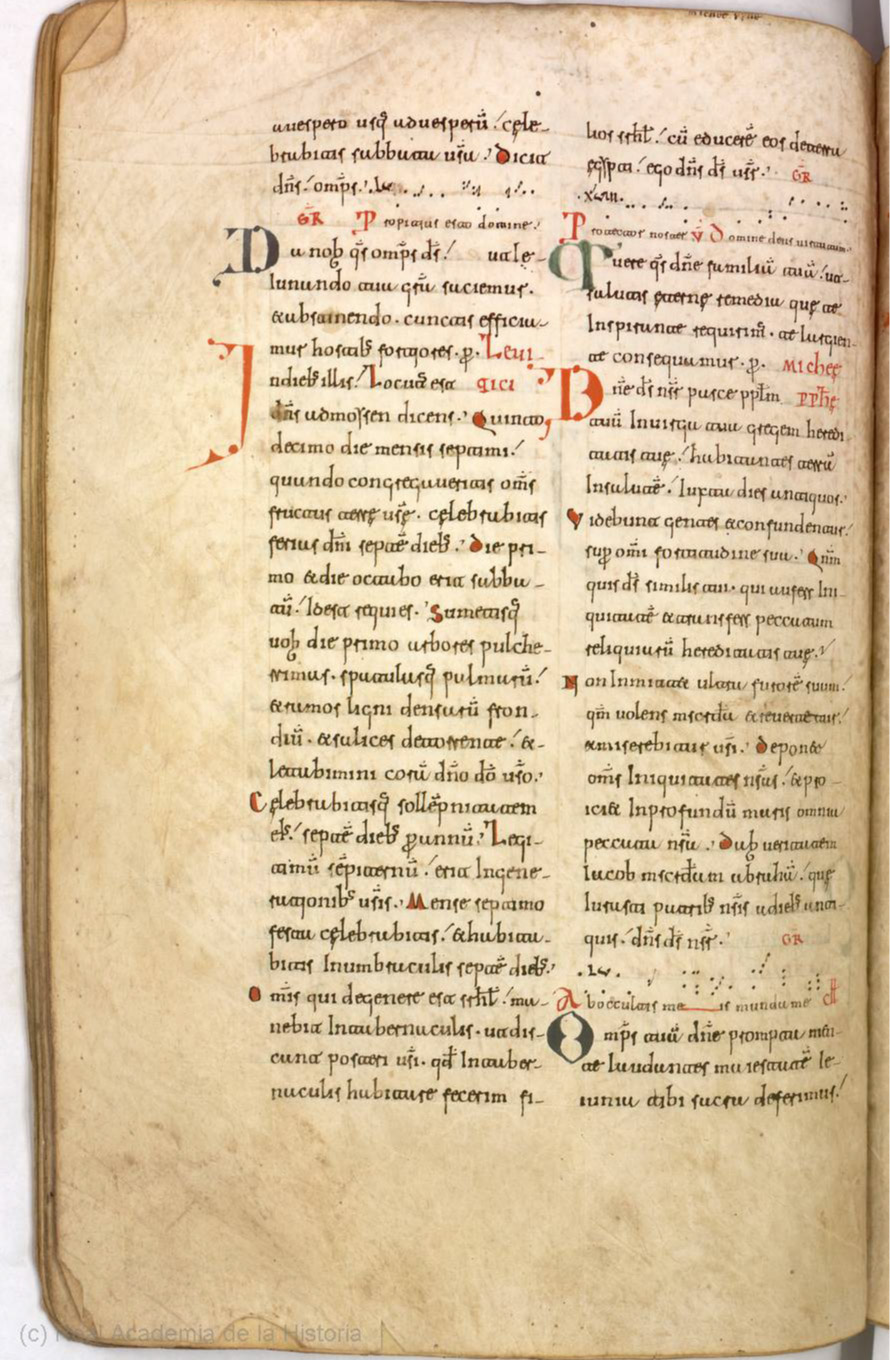 a uespero usq; ad uesperū! cęle-
brabitis sabbata ur̄a. Dicit
dn̄s omp̄s. .lv.
GR Propitius esto domine.
Da nob qs omp̄s ds̄! ut Ie-
Iunando tua gr̄a satiemur.
&abstinendo. cunctis efficia-
mur hostib; fortiores. p. Leui
Indieb; illis! Locutus est gici
dn̄s ad mossen dicens. Quinto
decimo die mensis septimi!
quando congregaueritis om̄s
fructus terrę ur̄ę. cęlebrabitis
ferias dn̄i septē dieb;. Die pri-
mo & die octabo erit sabba-
tū! Idest requies. Sumetisq;
uob die primo arbores pulche-
rrimas. spatulasq; palmarū!
& ramos ligni densarū fron-
diū. & salices detorrente! &-
letabimini corā dn̄o dō ur̄o.
Cęlebrabitisq; sollēpnitatem
ei! septē dieb; p annū. Legi-
timū sēpiternū! erit Ingene-
rationib; ur̄is. Mense septimo
festa cęlebrabitis! & habita-
bitis Inumbraculis septē dieb;
Om̄is qui degenere est srhl̄! ma-
nebit Intabernaculis. ut dis-
cant posteri ur̄i. qd̄ Intaber-
naculis habitare fecerim fi-
lios srhl̄! cū educerē eos deterra
egypti! ego dn̄s ds̄ ur̄. GR
.xlvii.
Protector noster V Domine deus uirtutum
Tuere qs dn̄e familiā tuā! ut
salutis ęternę remedia quę te
Inspirante requirim̄. te largien-
te consequamur. p. Micheę
Dn̄e ds̄ nr̄ pasce pplm̄ pph̄ę
tuū Inuirga tua gregem heredi
tatis tuę! habitantes terrā
Insaltu! Iuxta dies antiquos.
Videbunt gentes & confundentur!
sup om̄i fortitudine sua. Qm̄
quis ds̄ similis tui. qui aufers Ini-
quitatē & transfers peccatum
reliquiarū hereditatis tuę!
Non Inmittet ultra furorē suum!
qm̄ uolens mscrdā & reuertetur!
& miserebitur nr̄i. Deponet
om̄s Iniquitates nr̄as! & pro-
iciet Inprofundū maris omnia
peccata nr̄a. Dab ueritatem
Iacob mscrdam abrahā! quę
Iurasti patrib; nr̄is adieb; anti-
quis. dn̄s ds̄ nr̄. GR
.lv.
Ab occultis me is munda me
Omp̄s tuā dn̄e prompta men-
te laudantes maiestatē Ie-
iunia tibi sacra deferimus!
(c) Real Academia de la Historia